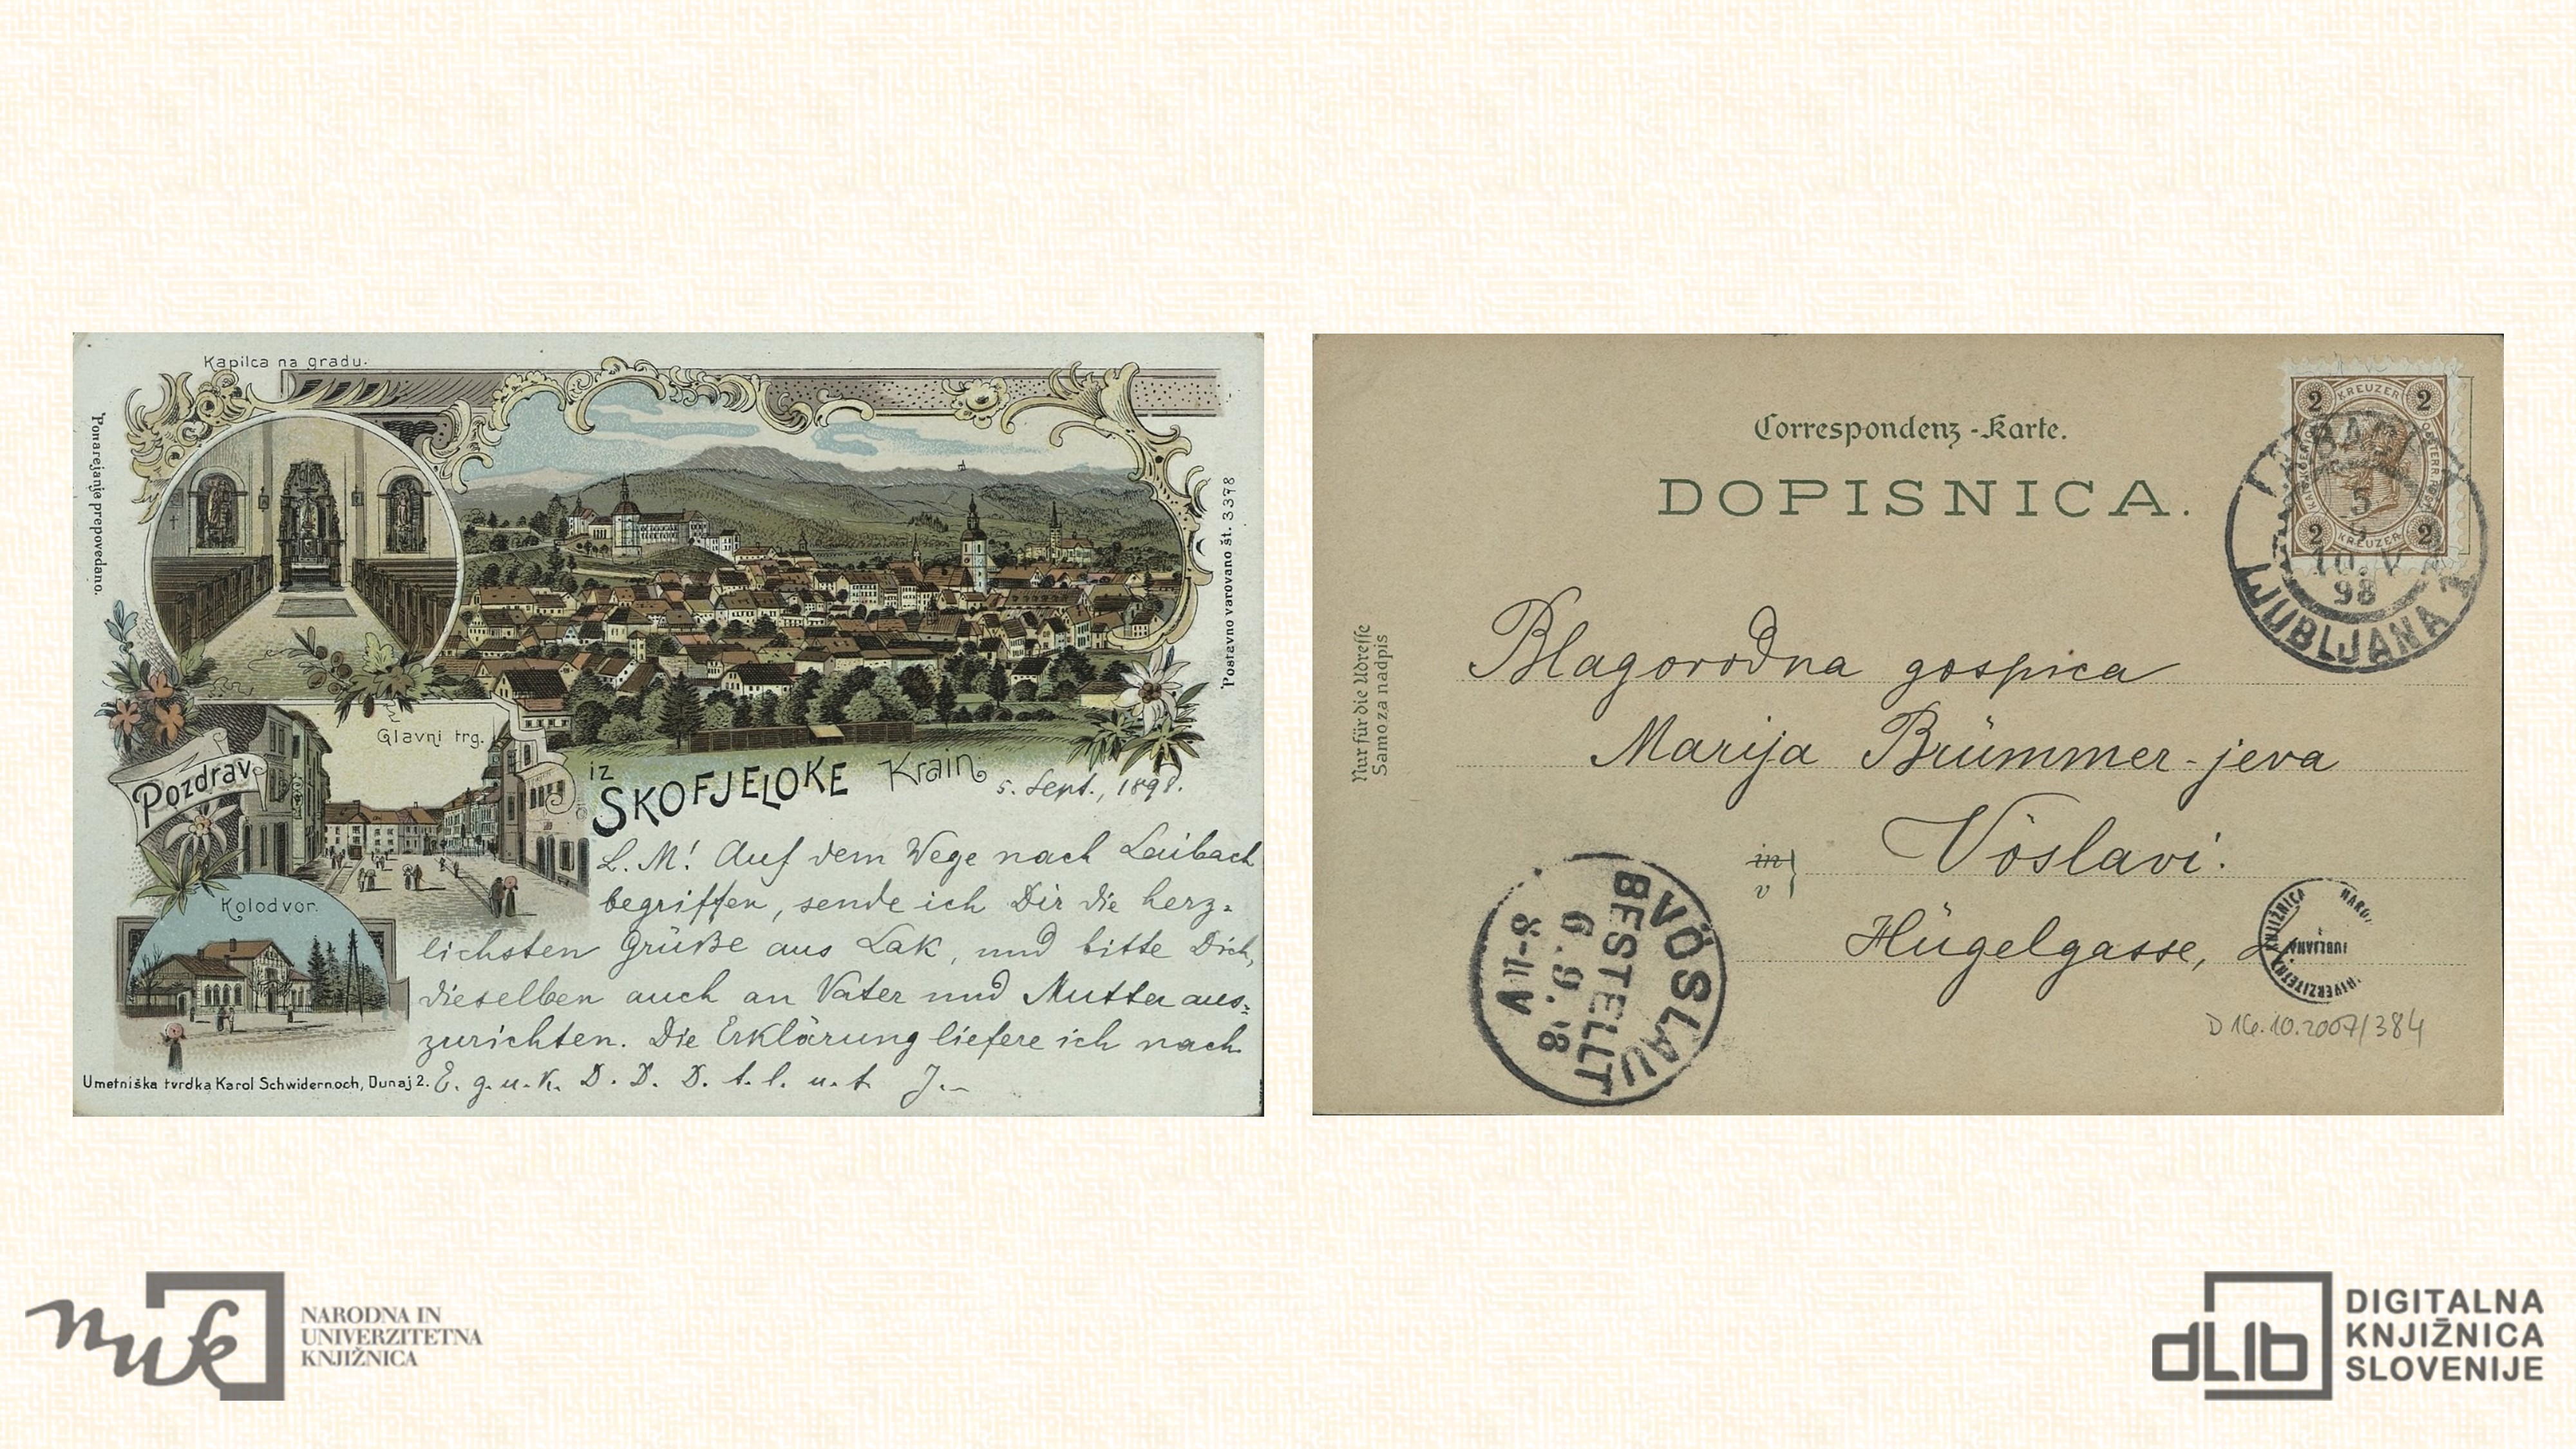 Kapilca na gradu.
Ponarejanje prepovedano.
Postavno varovano št. 3378
Glavni trg.
Pozdrav
iz
SKOFJELOKE Krain
5. Sept., 1898.
Kolodvor.
L. M! Auf dem Wege nach Laibach
begriffen, sende ich Dir die herz-
lichsten Grüße aus Lak, und bitte Dich,
dieselben auch an Vater und Mutter aus-
zurichten. Die Erklärung liefere ich nach
E. g. u. k. D. D. D. t. l. u. t. J.-
Umetniška tvrdka Karol Schwidernoch, Dunaj 2.
Correspondenz-Karte.
DOPISNICA.
Nur für die Adresse
Samo za nadpis
2 KREUZER 2
2 KREUZER 2
5
98
LJUBLJANA 1
Blagorodna gospica
Marija Brümmer-jeva
in
v
Vöslavi.
Hügelgasse,
VÖSLAU
BESTELLT
6.9.98
8-11 V
KNJIŽNICA
LJUBLJANA
D 16.10.2007/384
nuk
NARODNA IN
UNIVERZITETNA
KNJIŽNICA
dLib
DIGITALNA
KNJIŽNICA
SLOVENIJE